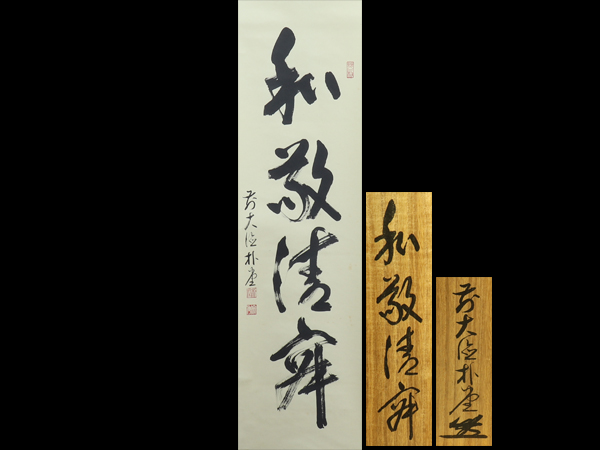 和敬清寂
前大徳朴堂
和敬清寂
前大徳朴堂